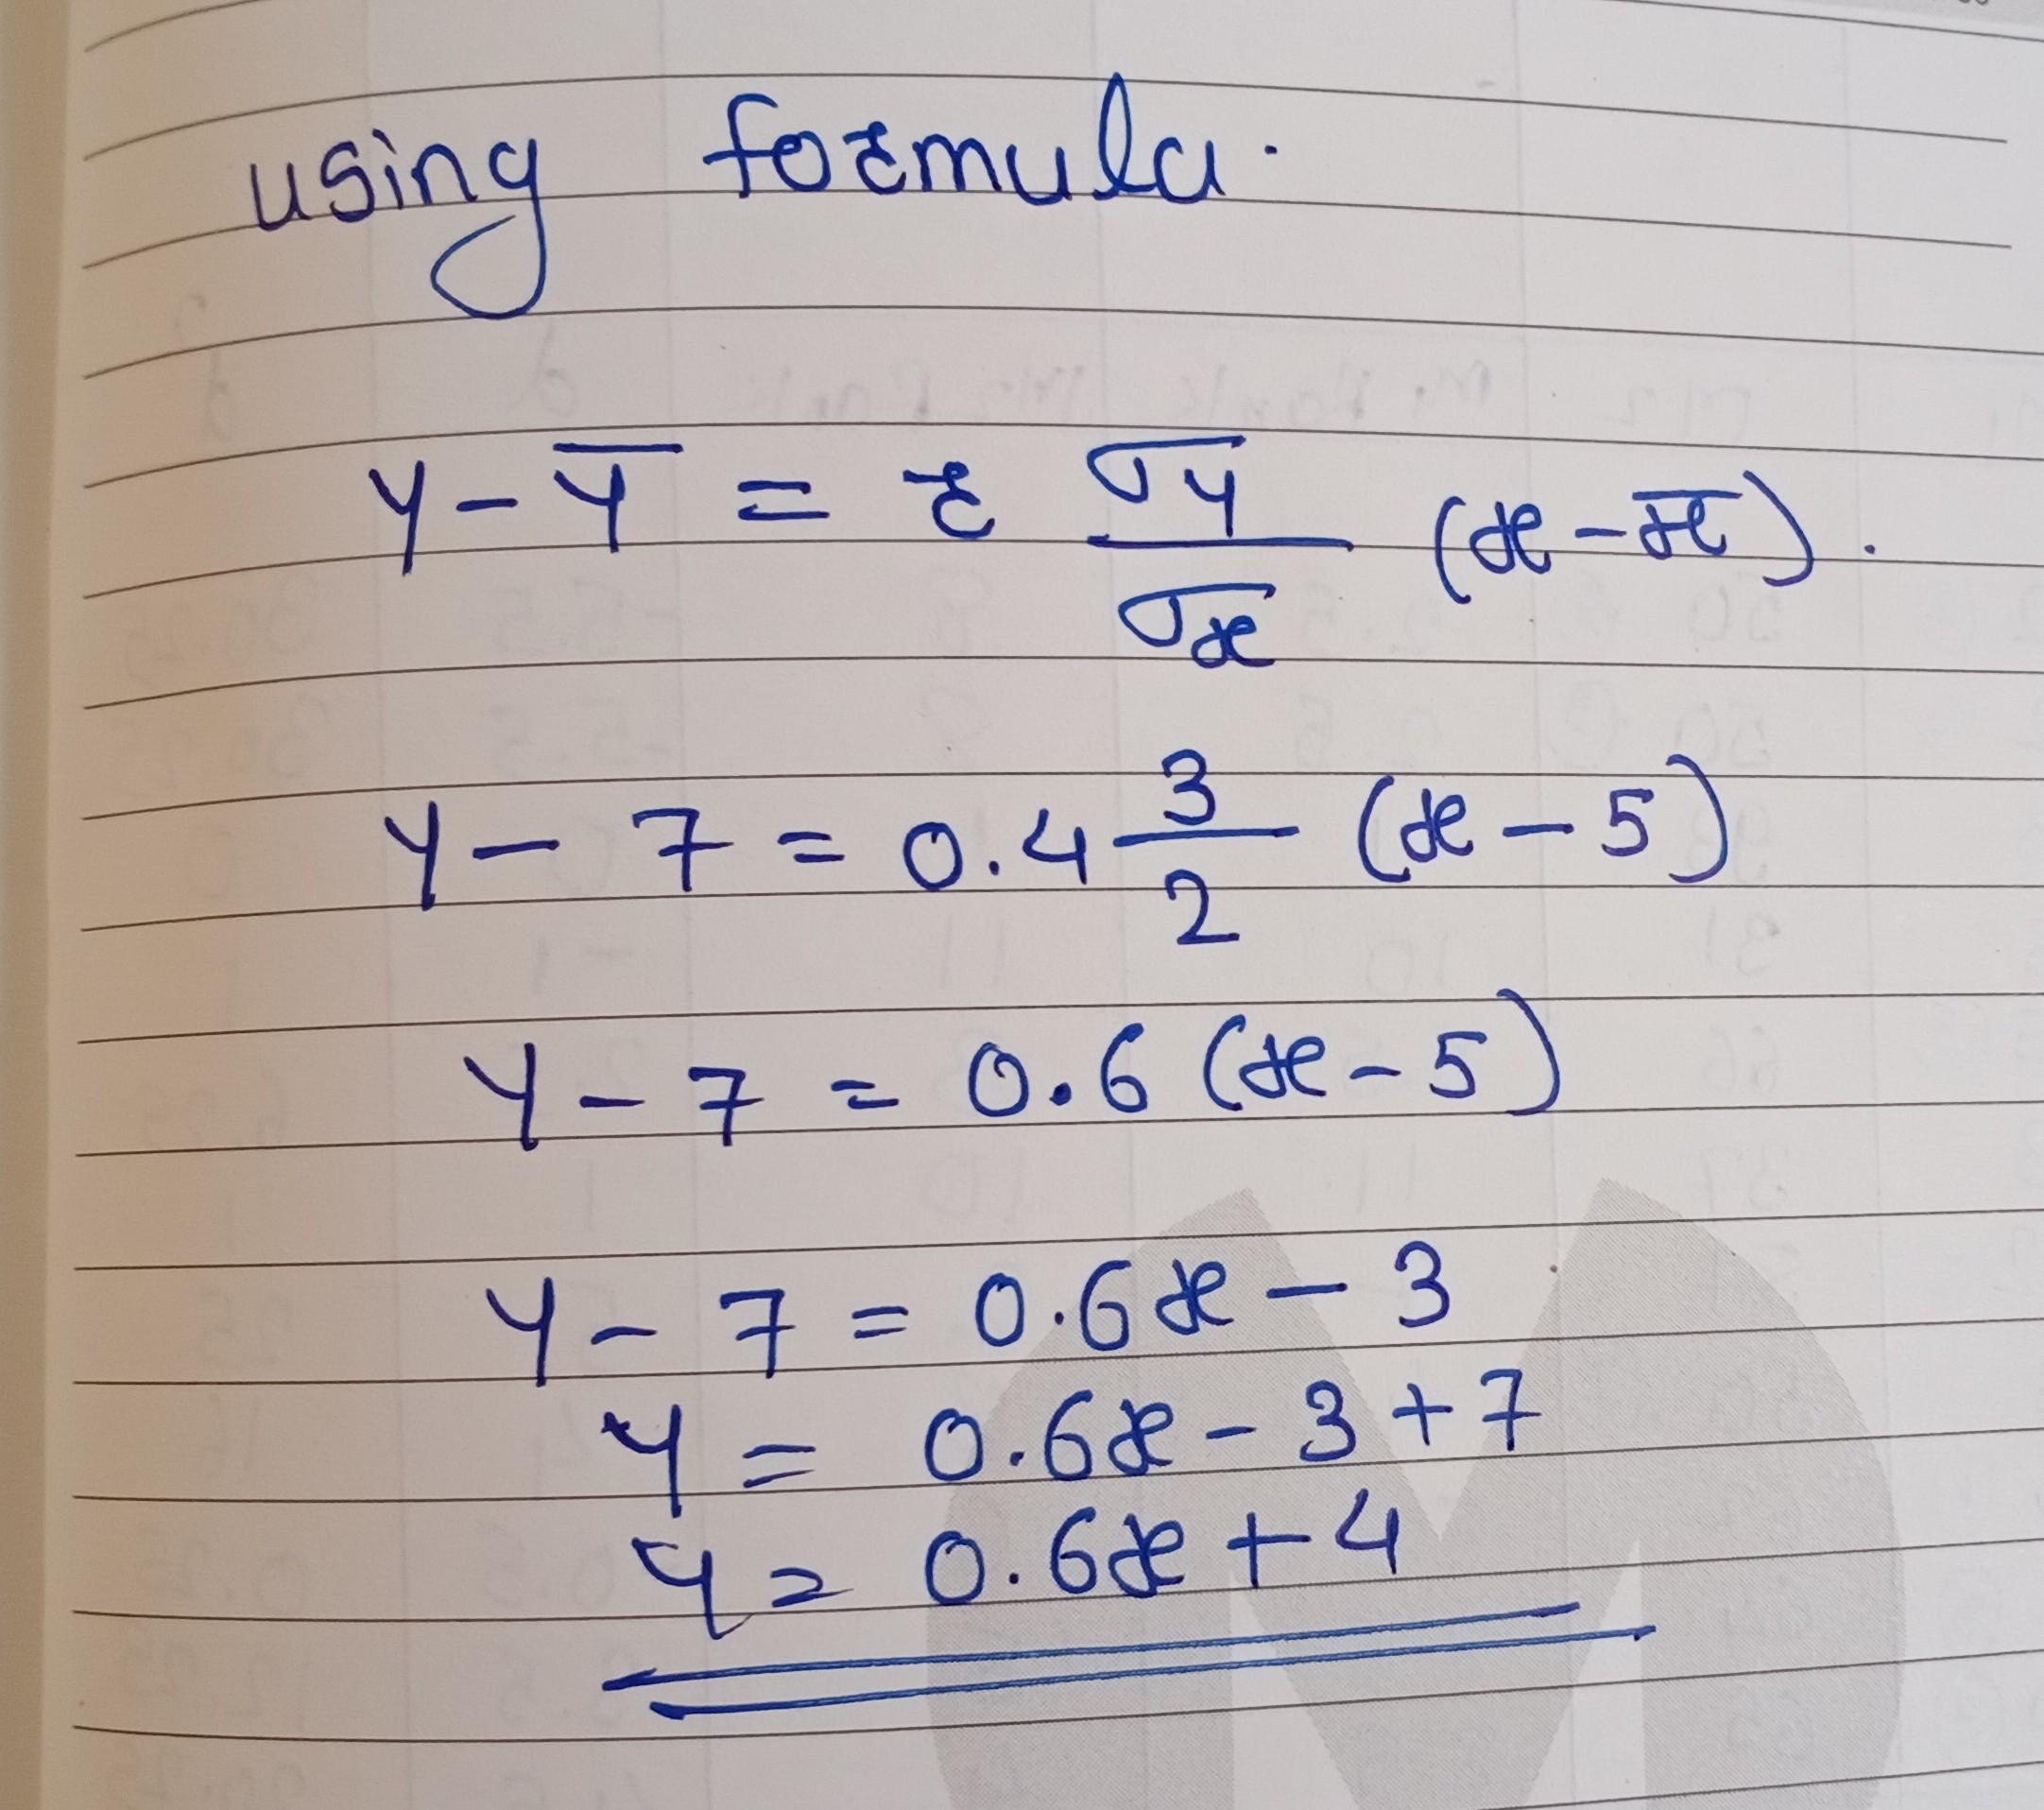 using formula.
y - ȳ = r σy/σx (x - x̄).
y - 7 = 0.4 3/2 (x - 5)
y - 7 = 0.6 (x - 5)
y - 7 = 0.6x - 3
y = 0.6x - 3 + 7
y = 0.6x + 4